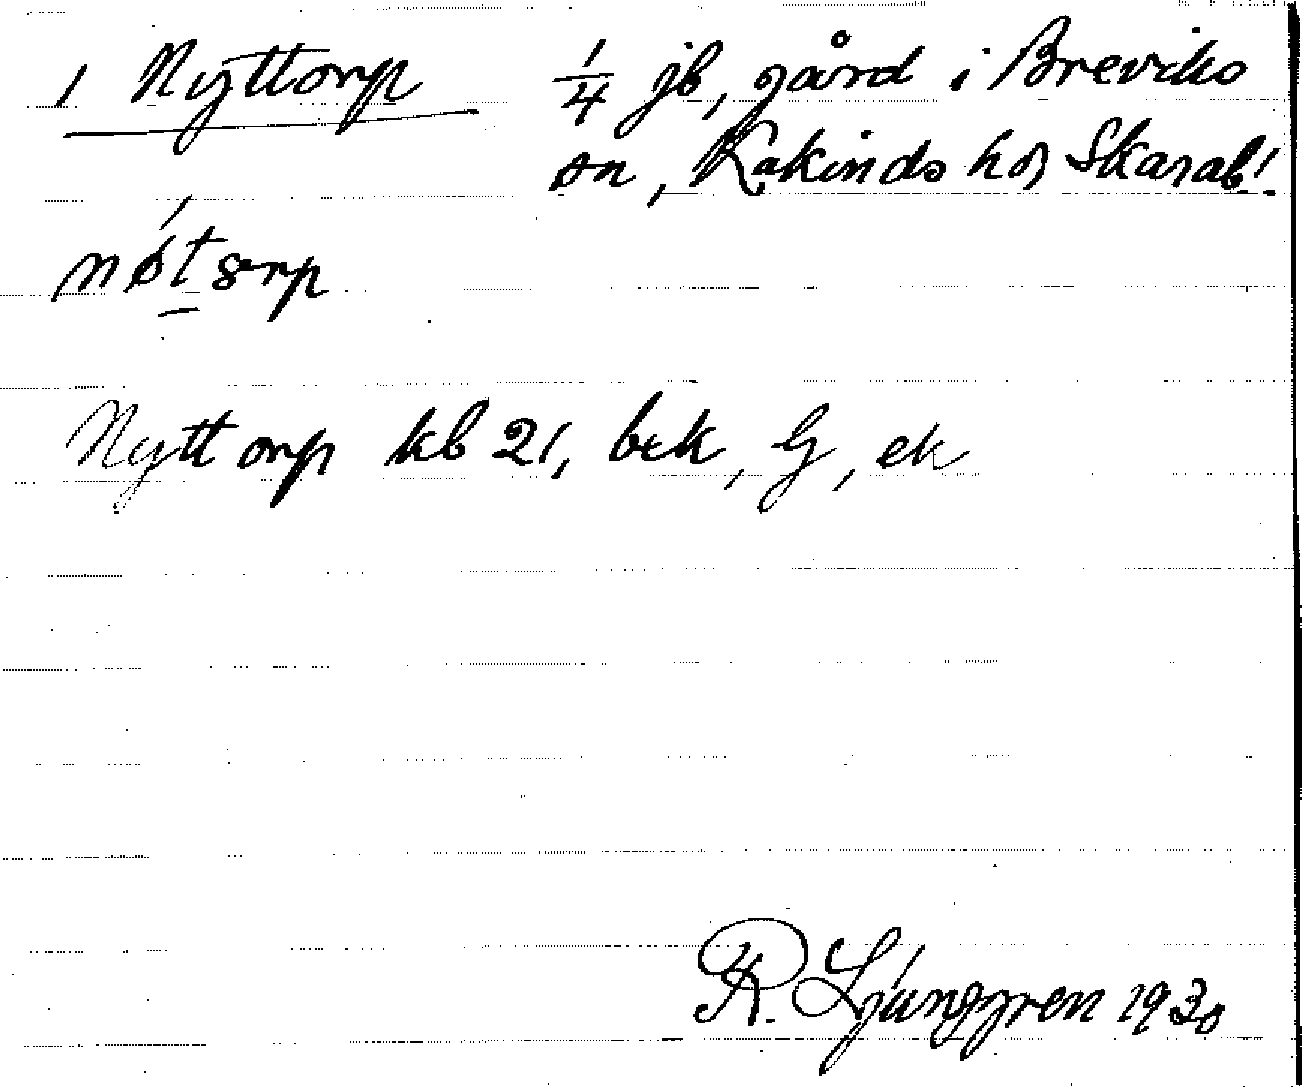 1 Nyttorp 1/4 jb, gård i Breviks
sn, Kakinds hd Skarab.
Nyttorp kb 21, bek, G, ek
R. Ljunggren 1930